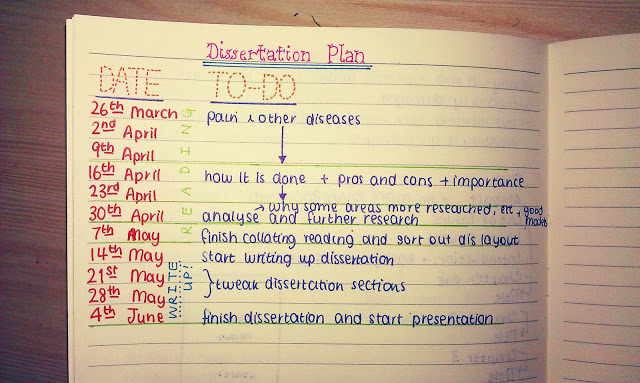 Dissertation Plan
DATE TO-DO
26th March pain & other diseases
2nd April
9th April
16th April how it is done + pros and cons + importance
23rd April
→ why some areas more researched, etc, good models
30th April analyse and further research
READING
7th May finish collating reading and sort out dis layout
14th May start writing up dissertation
21st May
} tweak dissertation sections
28th May
WRITE UP!
4th June finish dissertation and start presentation